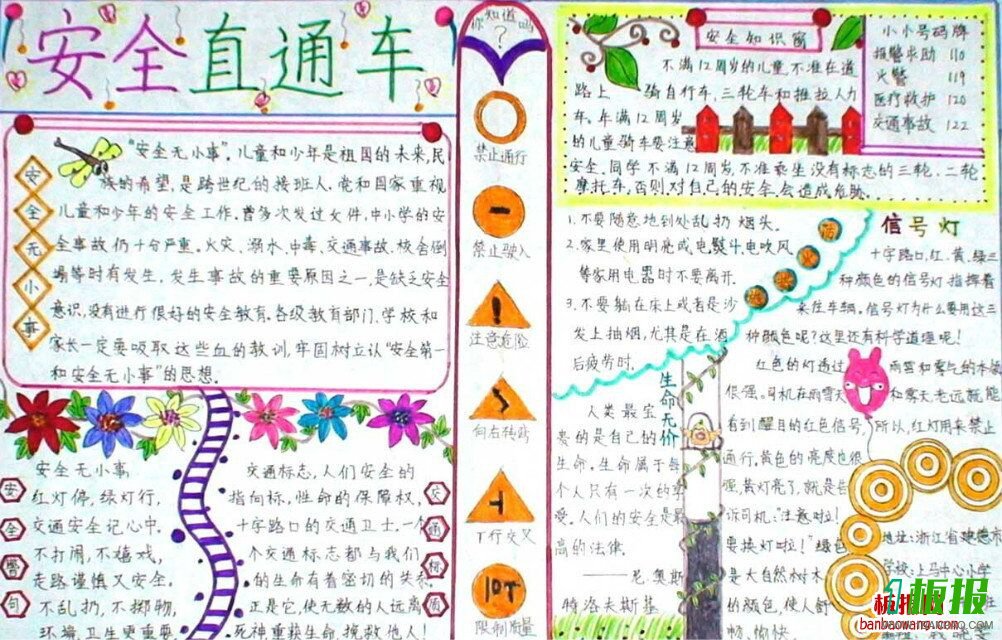 安全直通车
安
全
无
小
事
"安全无小事"。儿童和少年是祖国的未来,民
族的希望,是跨世纪的接班人。党和国家重视
儿童和少年的安全工作。曾多次发过文件,中小学的安
全事故仍十分严重。火灾、溺水、中毒、交通事故、校舍倒
塌等时有发生。发生事故的重要原因之一,是缺乏安全
意识,没有进行很好的安全教育。各级教育部门、学校和
家长一定要吸取这些血的教训,牢固树立认"安全第一
和安全无小事"的思想。
安
全
警
句
安全无小事
红灯停,绿灯行,
交通安全记心中。
不打闹,不嬉戏,
走路谨慎又安全。
不乱扔,不掷物,
环境卫生更重要
交通标志,人们安全的
指向标,性命的保障权,
十字路口的交通卫士,一个
个交通标志都与我们
的生命有着密切的关系。
正是它,使无数的人远离
死神重获生命,挽救他人!
交
通
标
质
你知道吗
?
禁止通行
禁止驶入
!
注意危险
向右转弯
下行交叉
10T
限制质量
安全知识窗
不满12周岁的儿童,不准在道
路上骑自行车,三轮车和推拉人力
车。车满12周岁
的儿童骑车要注意
安全。同学不满12周岁,不准乘坐没有标志的三轮、二轮
摩托车,否则,对自己的安全会造成危胁。
小小号码牌
报警求助 110
火警 119
医疗救护 120
交通事故 122
1.不要随意地到处乱扔烟头。
2.家里使用明亮或电熨斗电吹风
等家用电器时不要离开。
3.不要躺在床上或者是沙
发上抽烟,尤其是在酒
后疲劳时。
生命无价
人类最宝
贵的是自己的
生命。生命属于每
个人只有一次的
爱。人们的安全是最
高的法律。
——尼.奥斯
特洛夫斯基
信号灯
十字路口,红、黄、绿三
种颜色的信号灯指挥着
来往车辆。信号灯为什么要用这三
种颜色呢?这里还有科学道理呢!
红色的灯透过雨雲和雾气的本领
很强。司机在雨雲天和雾天老远就能
看到醒目的红色信号,所以,红灯用来禁止
通行,黄色的亮度也很
强,黄灯亮了,就是告
诉司机:"注意啦!
要换灯啦!"绿色
是大自然树木
的颜色,使人舒
畅、愉快。
地址:浙江省建德市
学校:上马中心小学
板报
板报网
banbaowang.com